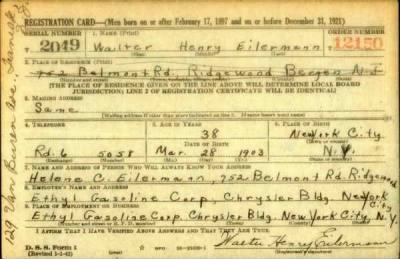 REGISTRATION CARD—(Men born on or after February 17, 1897 and on or before December 31, 1921)
SERIAL NUMBER 1. NAME (Print) ORDER NUMBER
2049 Walter Henry Eilermann 12150
(First) (Middle) (Last)
2. PLACE OF RESIDENCE (Print)
752 Belmont Rd. Ridgewood Bergen N.J.
[THE PLACE OF RESIDENCE GIVEN ON THE LINE ABOVE WILL DETERMINE LOCAL BOARD
JURISDICTION; LINE 2 OF REGISTRATION CERTIFICATE WILL BE IDENTICAL]
3. MAILING ADDRESS
Same
4. TELEPHONE 5. AGE IN YEARS 6. PLACE OF BIRTH
38 New York City
DATE OF BIRTH
Rd. 6 5058 Mar. 28 1903 N.Y.
7. NAME AND ADDRESS OF PERSON WHO WILL ALWAYS KNOW YOUR ADDRESS
Helene C. Eilermann, 752 Belmont Rd. Ridgewood
8. EMPLOYER'S NAME AND ADDRESS
Ethyl Gasoline Corp, Chrysler Bldg. New York City
9. PLACE OF EMPLOYMENT OR BUSINESS
Ethyl Gasoline Corp. Chrysler Bldg. New York City, N.Y.
I AFFIRM THAT I HAVE VERIFIED ABOVE ANSWERS AND THAT THEY ARE TRUE.
D. S. S. Form 1
Walter Henry Eilermann
129 Van Buren Ave.